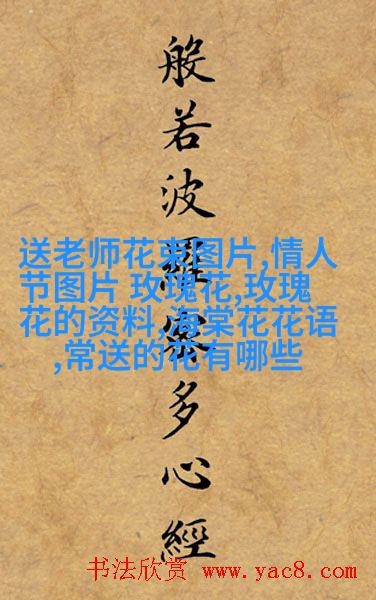 般若波羅蜜多心經
送老师花束图片,情人
节图片 玫瑰花,玫瑰
花的资料,海棠花花语
,常送的花有哪些
书法欣赏 www.yac8.com